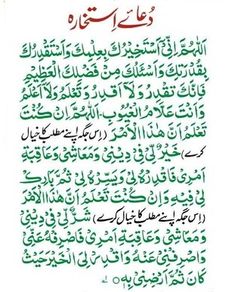 دُعائے اِستخارہ
اَللّٰهُمَّ اِنِّیْ اَسْتَخِیْرُكَ بِعِلْمِكَ وَاَسْتَقْدِرُكَ
بِقُدْرَتِكَ وَاَسْئَلُكَ مِنْ فَضْلِكَ الْعَظِیْمِ
فَاِنَّكَ تَقْدِرُ وَلَاۤ اَقْدِرُ وَتَعْلَمُ وَلَاۤ اَعْلَمُ
وَاَنْتَ عَلَّامُ الْغُیُوْبِ اَللّٰهُمَّ اِنْ كُنْتَ
تَعْلَمُ اَنَّ هٰذَا الْاَمْرَ (اِس جگہ اپنے مطلب کا خیال
کرے) خَیْرٌ لِّیْ فِیْ دِیْنِیْ وَمَعَاشِیْ وَعَاقِبَةِ
اَمْرِیْ فَاقْدِرْهُ لِیْ وَیَسِّرْهُ لِیْ ثُمَّ بَارِكْ
لِیْ فِیْهِ وَاِنْ كُنْتَ تَعْلَمُ اَنَّ هٰذَا الْاَمْرَ
(اِس جگہ اپنے مطلب کا خیال کرے) شَرٌّ لِّیْ فِیْ دِیْنِیْ
وَمَعَاشِیْ وَعَاقِبَةِ اَمْرِیْ فَاصْرِفْهُ عَنِّیْ
وَاصْرِفْنِیْ عَنْهُ وَاقْدِرْ لِیَ الْخَیْرَ حَیْثُ
كَانَ ثُمَّ اَرْضِنِیْ بِهٖ